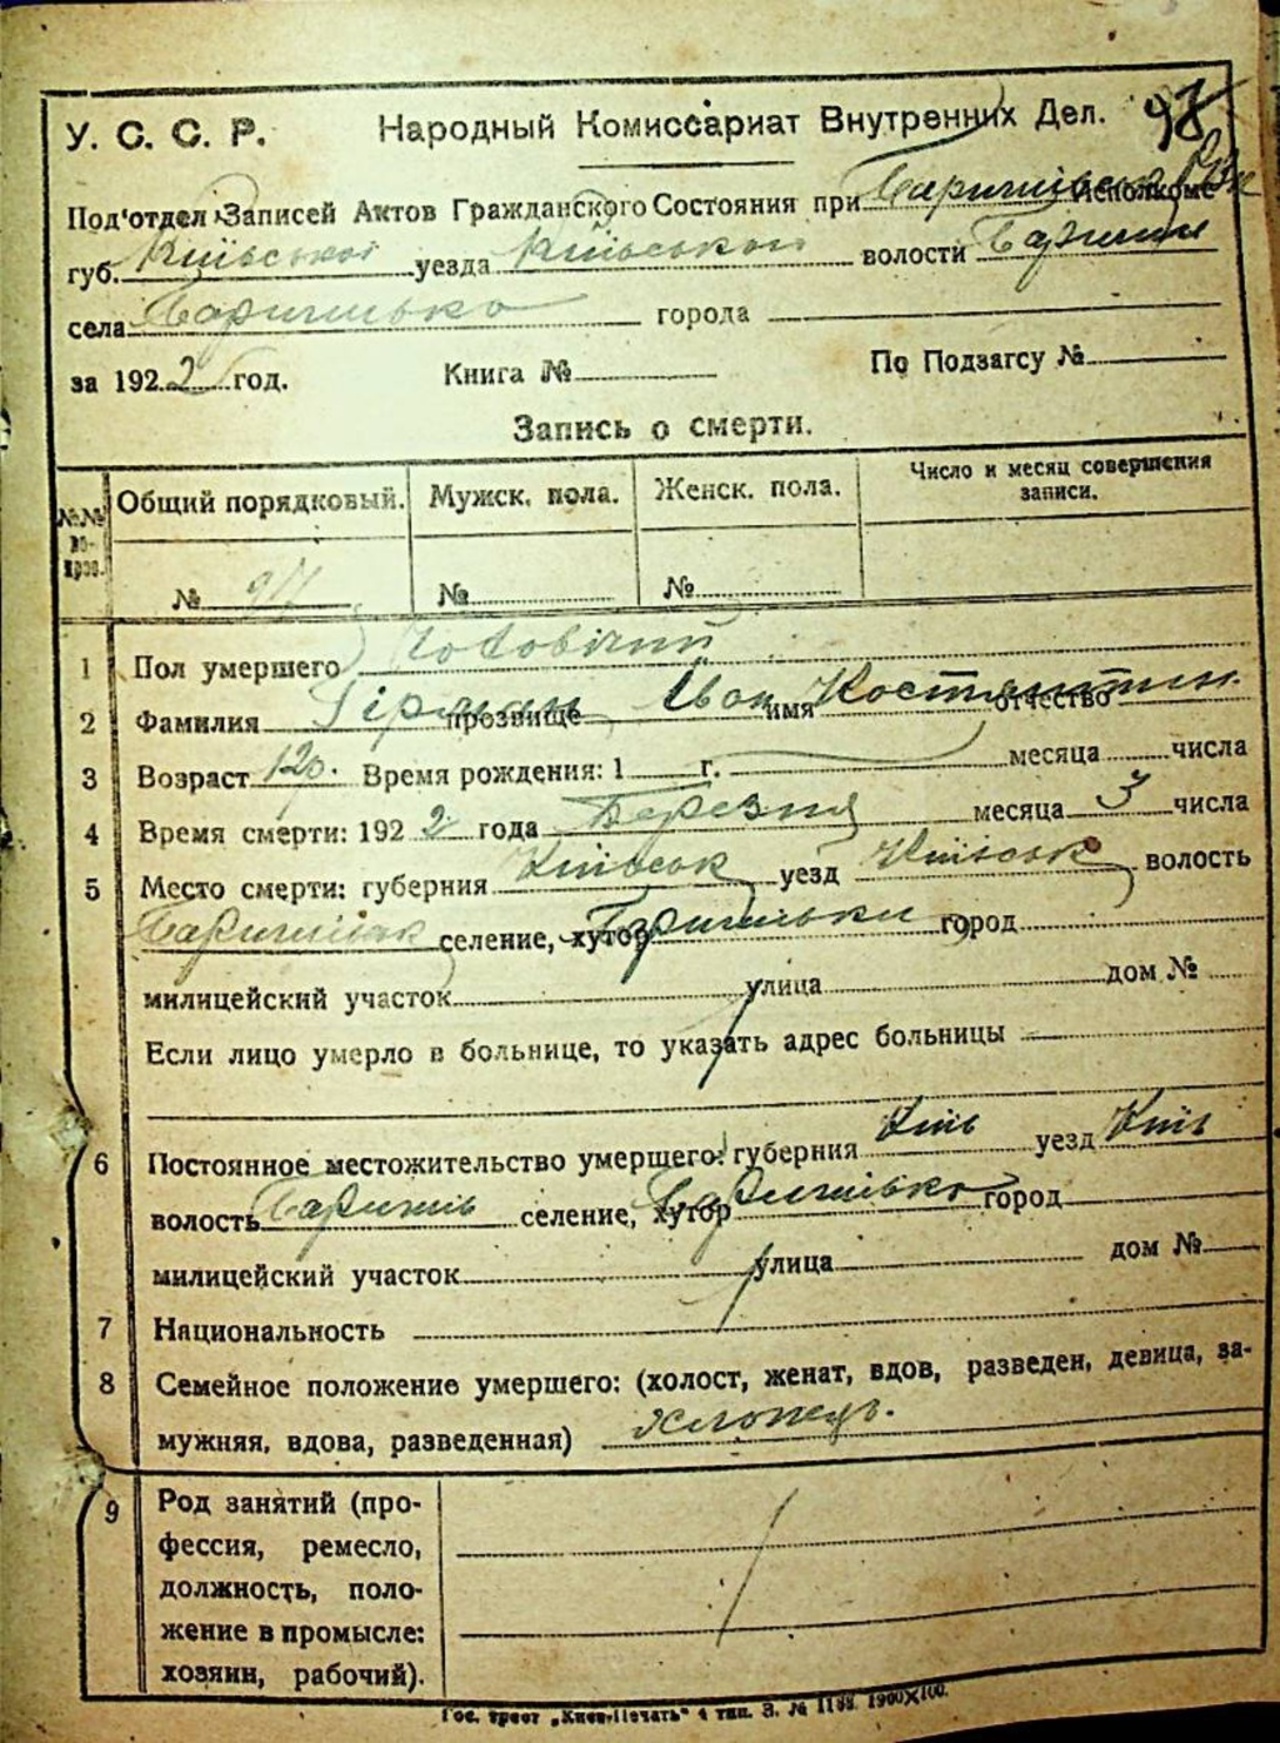 У. С. С. Р. Народный Комиссариат Внутренних Дел. 98
Под'отдел Записей Актов Гражданского Состояния при Исполкоме
губ. Київської уезда Київського волости
села города
за 1922 год. Книга № По Подзагсу №
Запись о смерти.
№№ вопров. Общий порядковый. Мужск. пола. Женск. пола. Число и месяц совершения записи.
№ № №
1 Пол умершего Чоловічий
2 Фамилия прозвище Іван имя Костянтин отчество
3 Возраст 12р. Время рождения: 1 г. месяца числа
4 Время смерти: 1922 года Березня месяца 3 числа
5 Место смерти: губерния Київськ уезд Київськ волость
селение, хутор город
милицейский участок улица дом №
Если лицо умерло в больнице, то указать адрес больницы
6 Постоянное местожительство умершего: губерния Київ уезд Київ
волость селение, хутор город
милицейский участок улица дом №
7 Национальность
8 Семейное положение умершего: (холост, женат, вдов, разведен, девица, за-
мужняя, вдова, разведенная) хлопець.
9 Род занятий (про-
фессия, ремесло,
должность, поло-
жение в промысле:
хозяин, рабочий).
Гос. трест „Киев-Печать" 4 тип. З. № 1188. 1900×100.